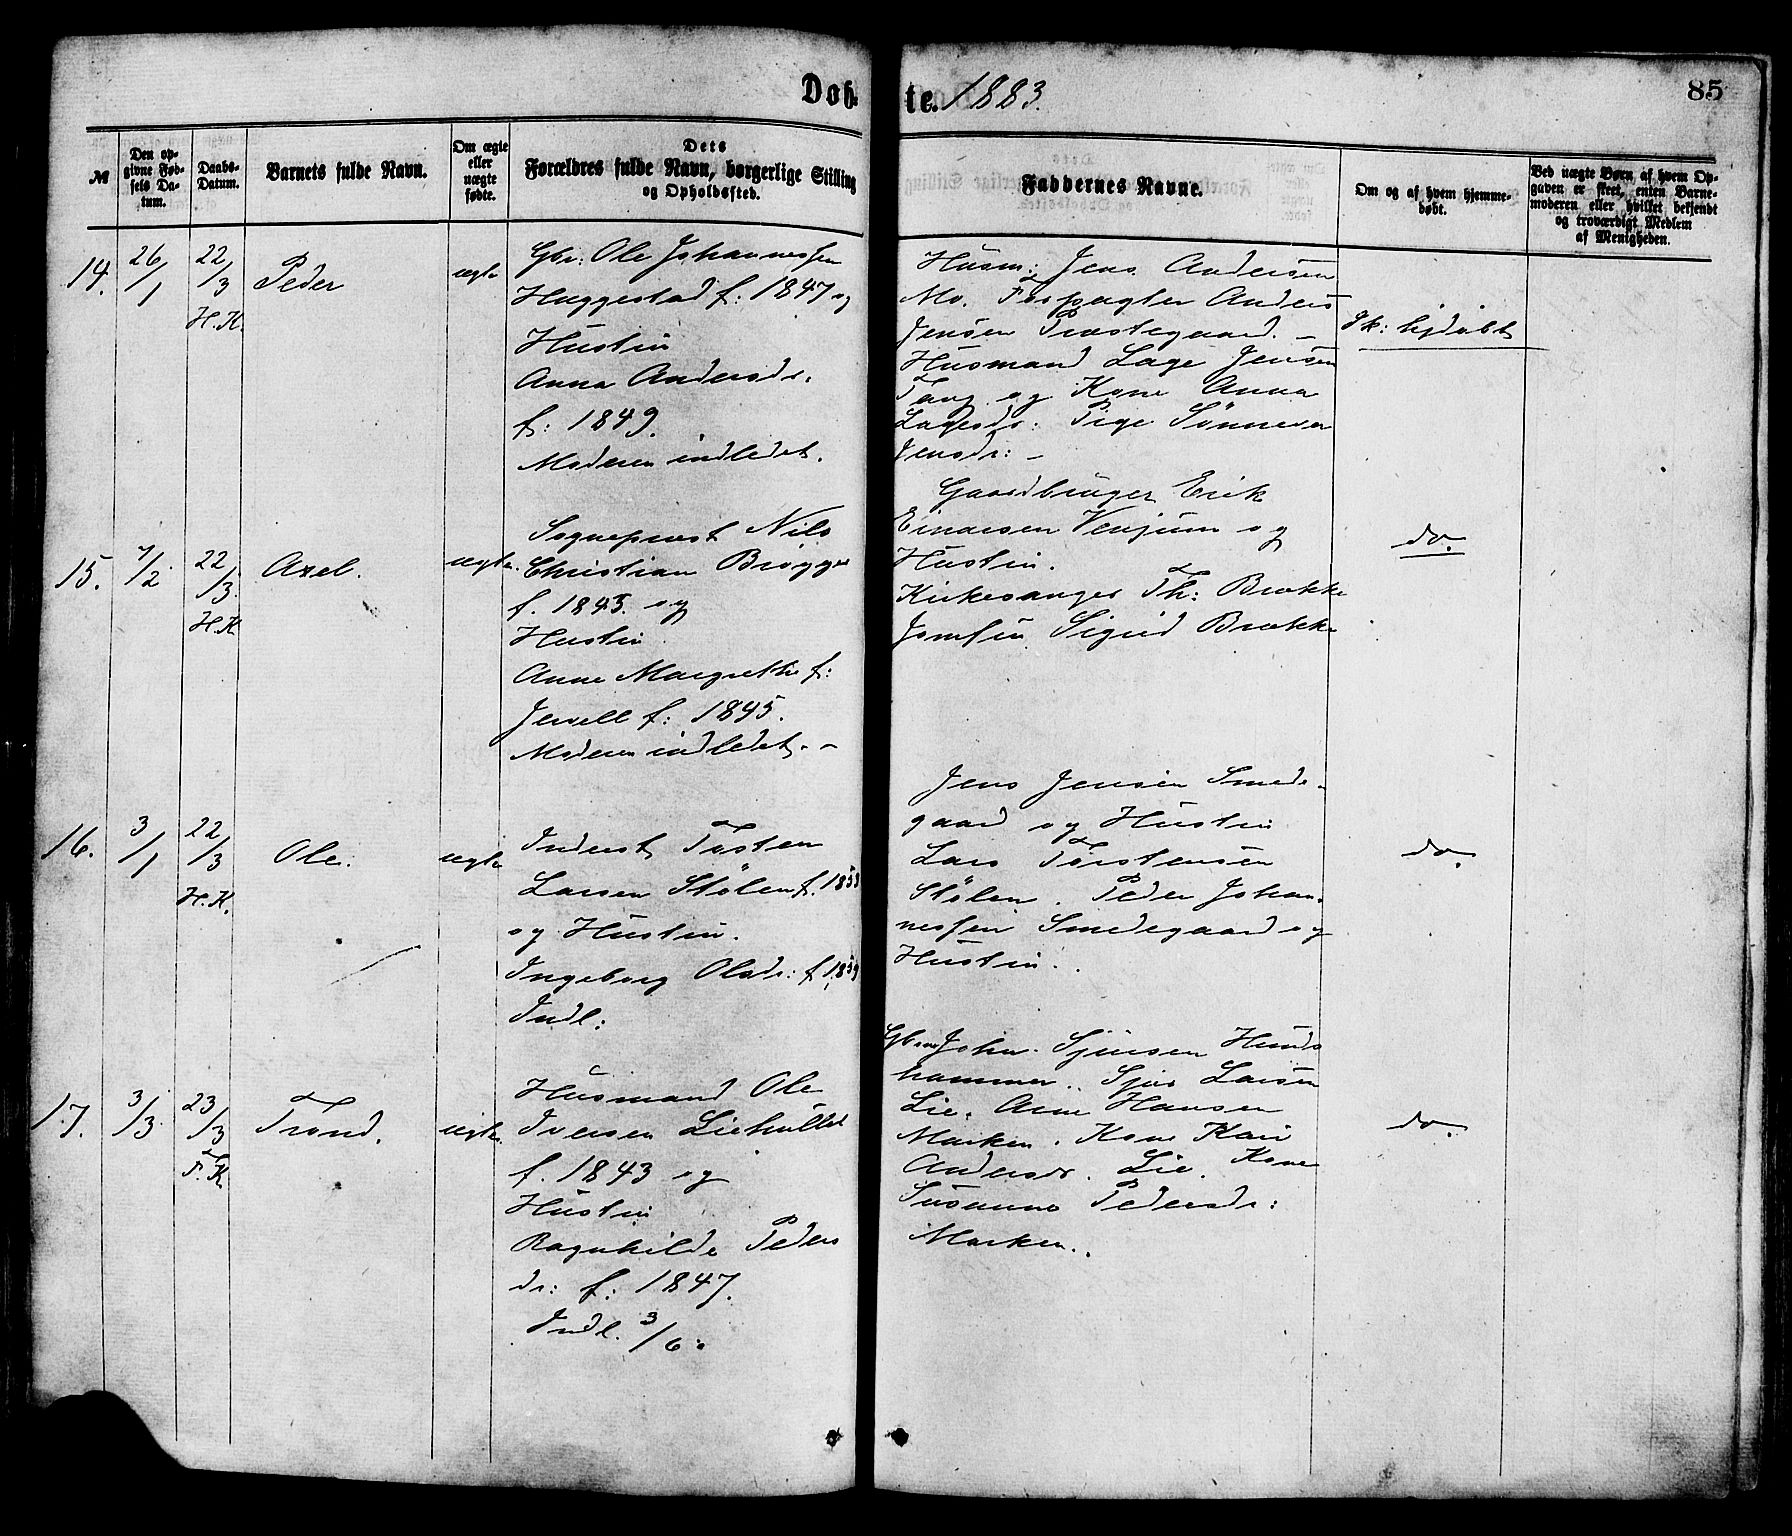 Døb-
te. 1883.
85
№
Den op-
givne Fød-
sels Da-
tum.
Daabs-
Datum.
Barnets fulde Navn.
Om ægte
eller
uægte
fødte.
Dets
Forældres fulde Navn, borgerlige Stilling
og Opholdssted.
Faddernes Navne.
Om og af hvem hjemme-
døbt.
Ved uægte Børn, af hvem Op-
gaven er skeet, enten Barne-
moderen eller hvilket bekjendt
og troværdigt Medlem
af Menigheden.
14.
26/1
22/3
H.K.
Peder
ægte
Gbr: Ole Johannessen
Haggestad f: 1847 og
Hustru
Anna Andersdr.
f: 1849.
Moderen indledet.
Husm: Jens Andersen
Mo. Forpagter Anders
Jensen Præstegaard. –
Husmand Lage Jensen
Tang og Kone Anna
Lagesdr: Pige Sønneva
Jensdr: –
hjdøbt
15.
7/2
22/3
H.K.
Axel.
ægte
Sognepræst Nils
Christian Brøgger
f. 1843. og
Hustru
Anne Margrethe f:
Jervell f: 1845.
Moderen indledet. –
Gaardbruger Erik
Einarsen Venjum og
Hustru.
Kirkesanger Th: Brække
Jomfru Sigrid Brække
do.
16.
3/1
22/3
H.K.
Ole.
ægte
Inderst Tosten
Larsen Stølen f. 1858
og Hustru.
Ingeborg Olsdr: f. 1859
Indl:
Jens Jensen Smede-
gaard og Hustru
Lars Torstensen
Stølen. Peder Johan-
nessen Smedegaard og
Hustru.
do.
17.
3/3
23/3
F.K
Trond.
ægte
Husmand Ole
Iversen Liehultet
f. 1843 og
Hustru
Ragnhilde Peders
dr: f: 1847.
Indl. 3/6.
Gbrm John Sjursen Hunds
hammer. Sjur Larsen
Lie. Arne Hansen
Marken. Kone Kari
Andersdr. Lie. Kone
Susanne Pedersdr:
Marken.
do.